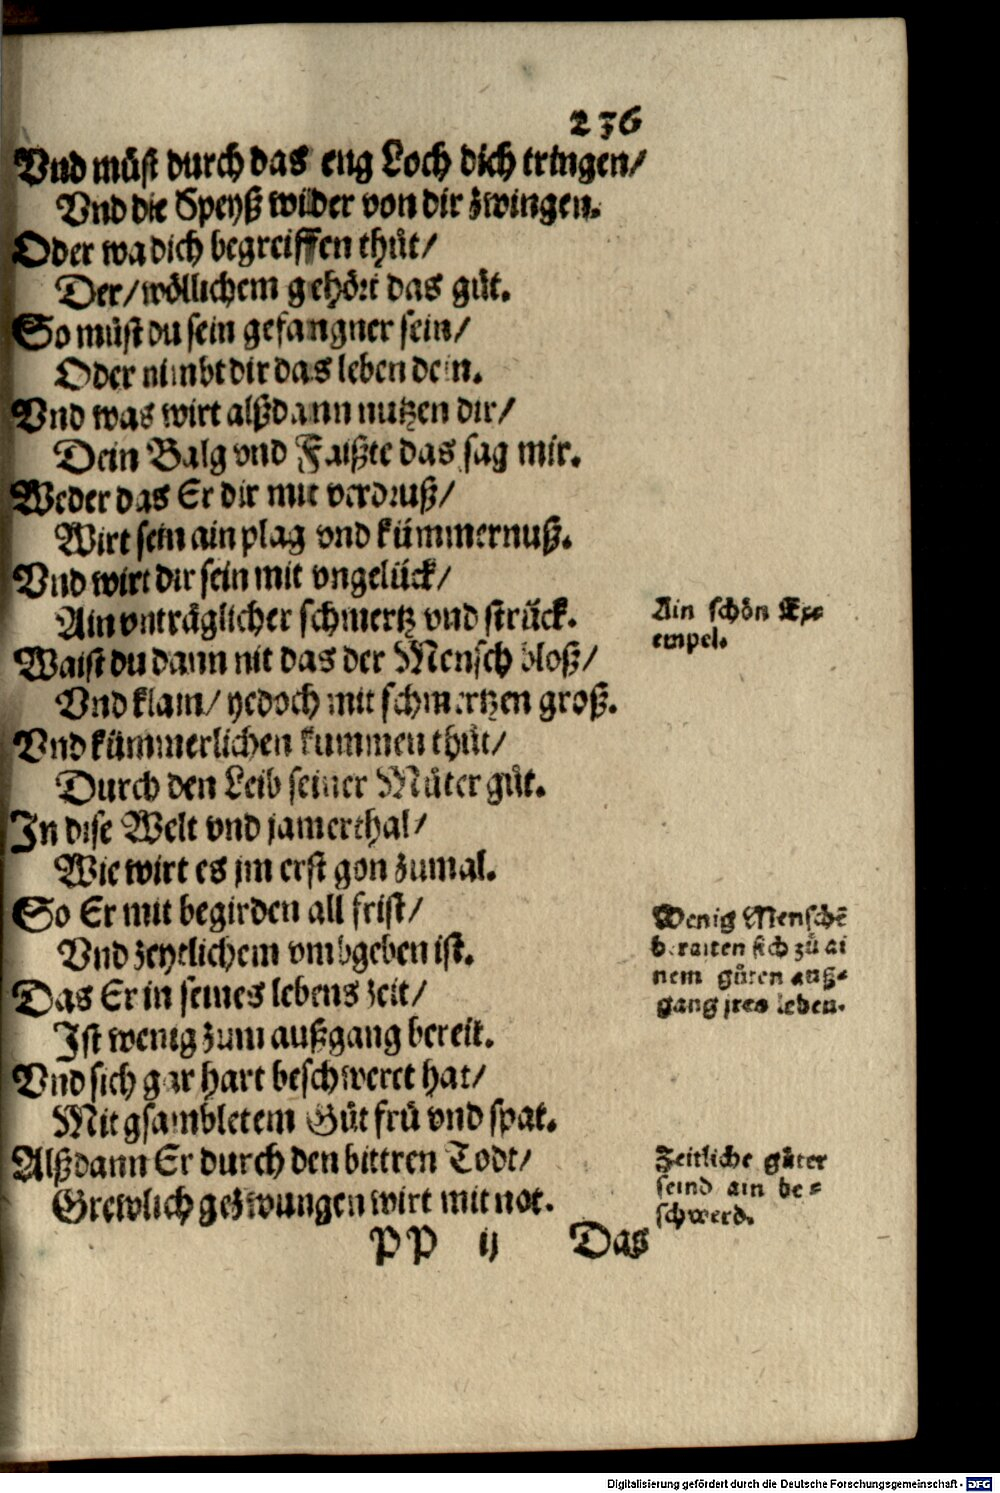 236
Vnd můſt durch das eng Loch dich tringen/
Vnd die Speyß wider von dir zwingen.
Oder wa dich begreiffen thůt/
Der/ wöllichem gehört das gůt.
So můſt du ſein gefangner ſein/
Oder nimbt dir das leben dein.
Vnd was wirt alßdann nutzen dir/
Dein Balg vnd Faißte das ſag mir.
Weder das Er dir mit verdruß/
Wirt ſein ain plag vnd kümmernuß.
Vnd wirt dir ſein mit vngelück/
Ain vnträglicher ſchmertz vnd ſtrück.
Ain ſchön Ex⸗
empel.
Waiſt du dann nit das der Menſch bloß/
Vnd klain/ yedoch mit ſchmertzen groß.
Vnd kümmerlichen kummen thůt/
Durch den Leib ſeiner Můter gůt.
In diſe Welt vnd jamerthal/
Wie wirt es jm erſt gon zumal.
So Er mit begirden all friſt/
Vnd zeytlichem vmbgeben iſt.
Wenig Menſchē
beraiten ſich zů ai
nem gůten auß⸗
gang jres leben.
Das Er in ſeines lebens zeit/
Iſt wenig zum außgang bereit.
Vnd ſich gar hart beſchweret hat/
Mit gſambletem Gůt frü vnd ſpat.
Alßdann Er durch den bittren Todt/
Grewlich gezwungen wirt mit not.
Zeitliche güter
ſeind ain be⸗
ſchwerd.
PP ij Das
Digitalisierung gefördert durch die Deutsche Forschungsgemeinschaft - DFG